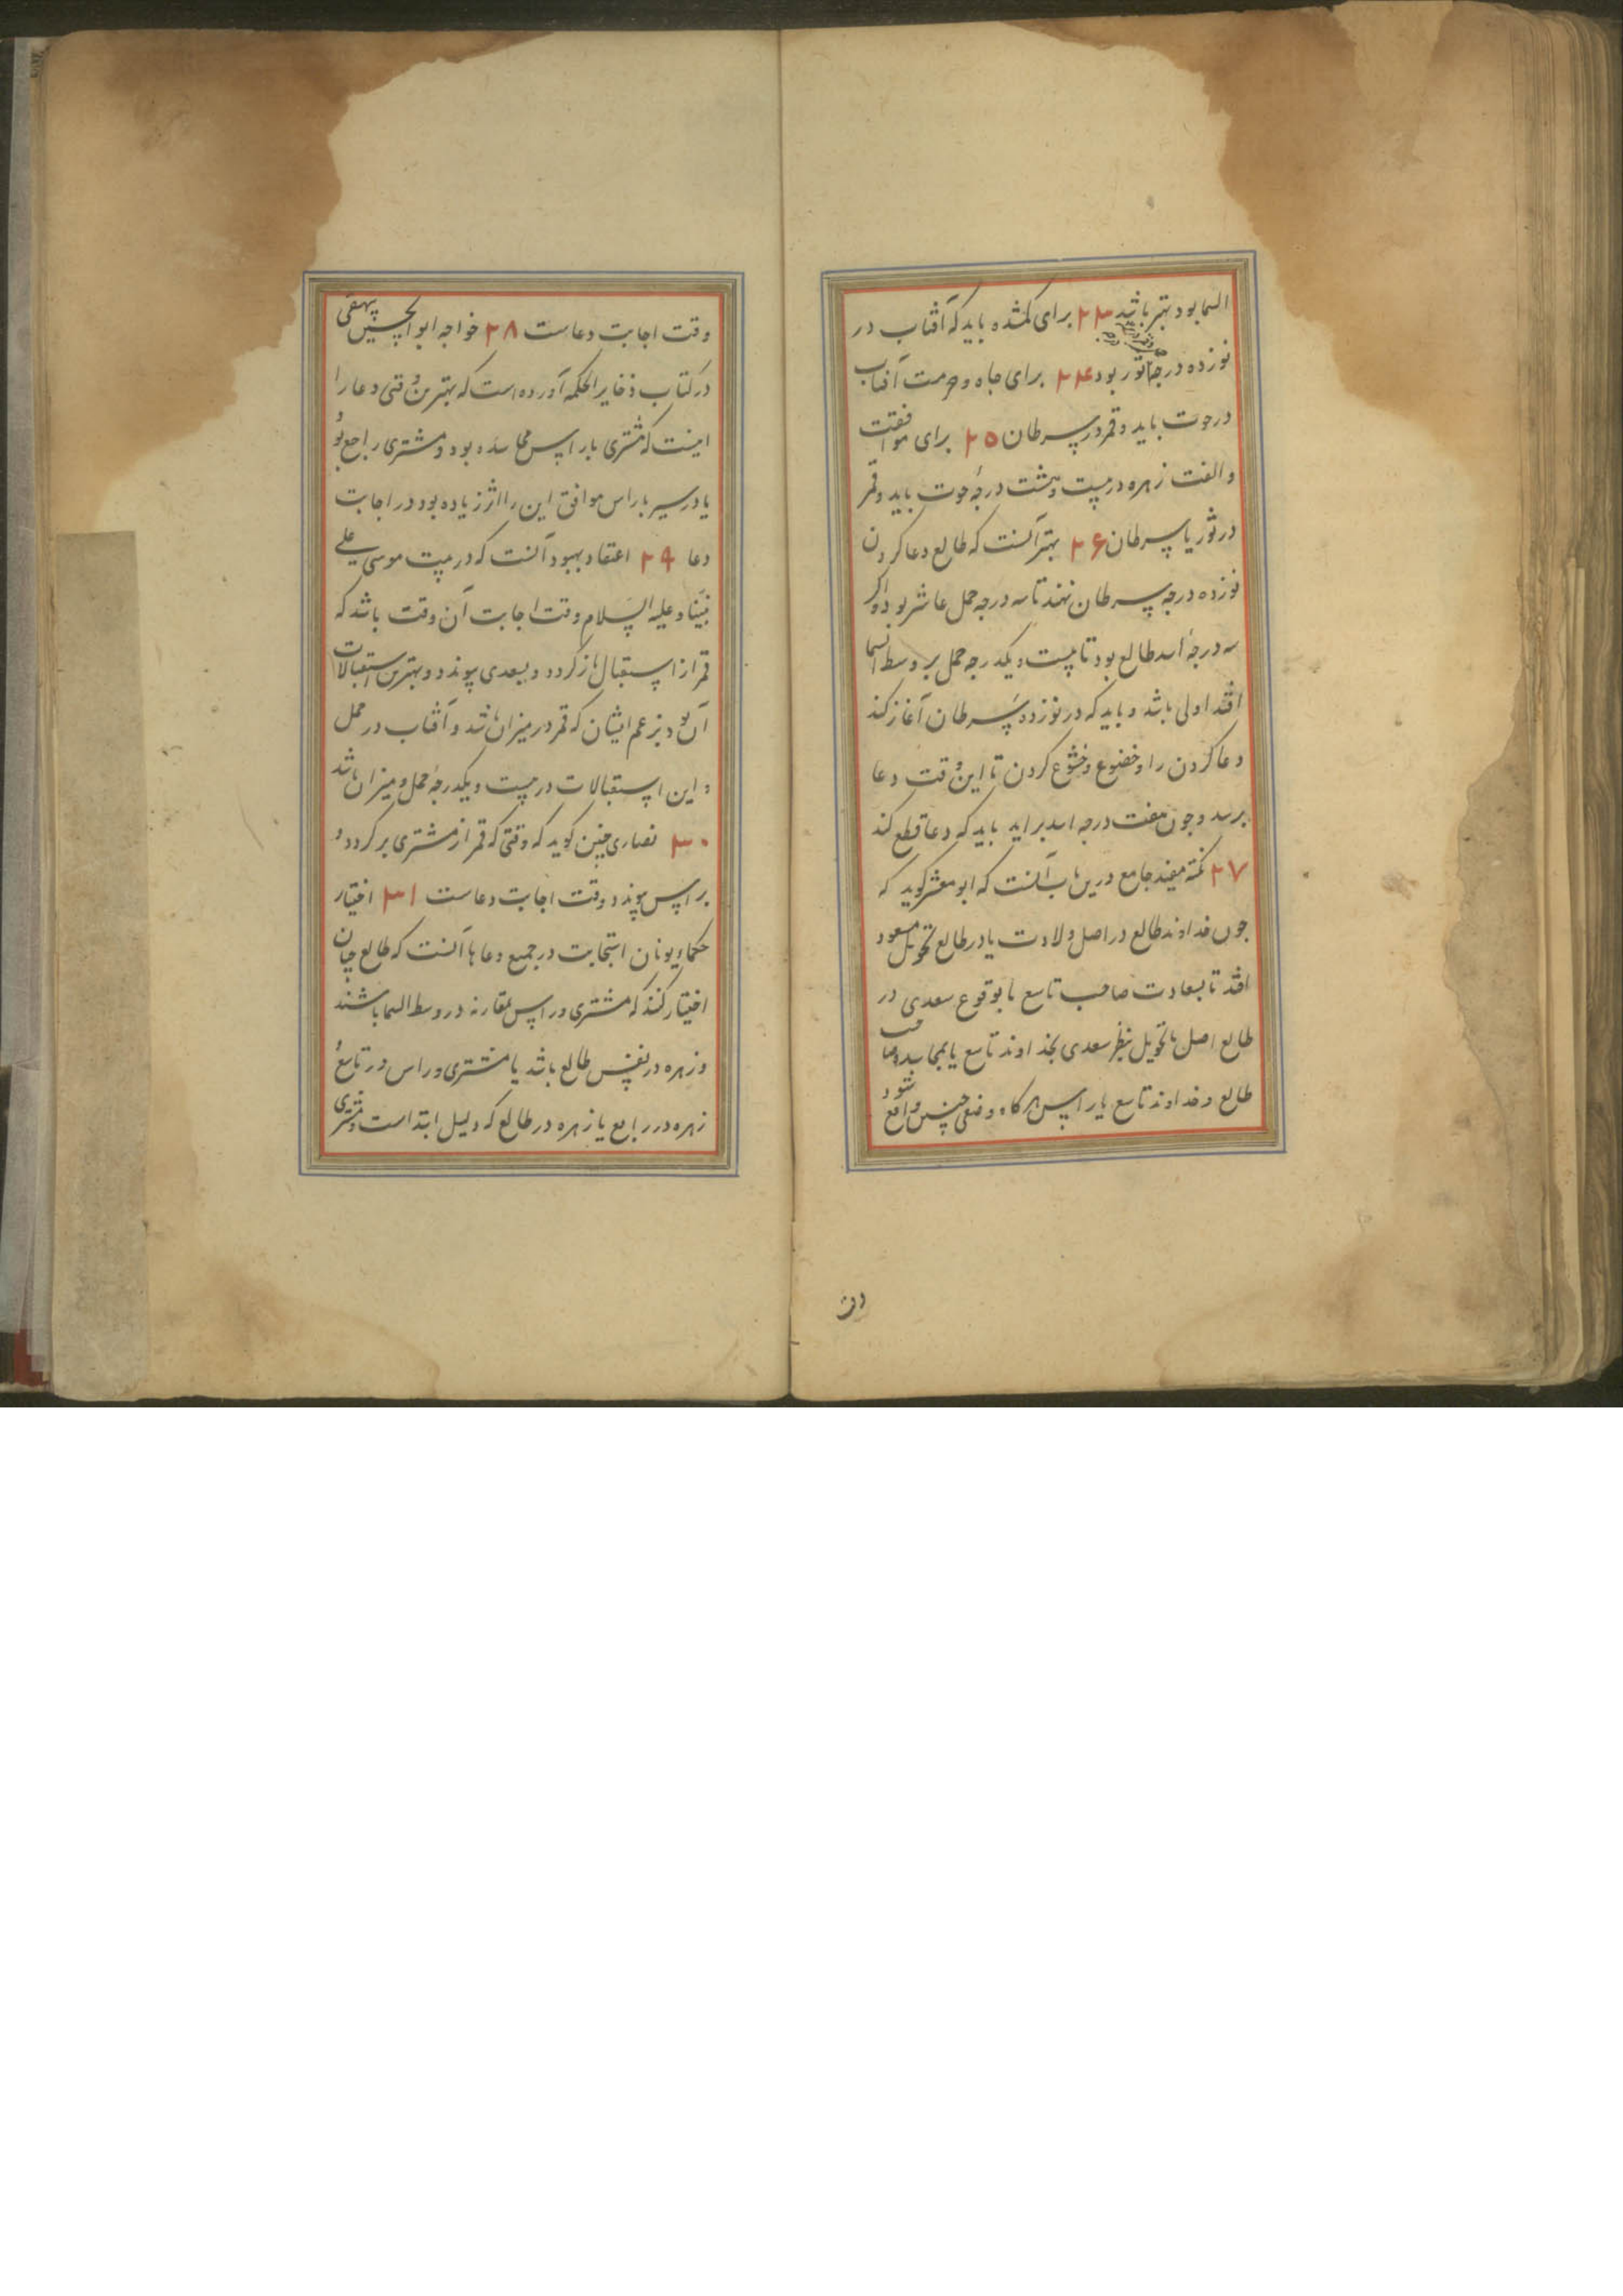 السما بود بهتر باشد ۲۳ برای کمشده باید که آفتاب در
نوزده درجهٔ ثور بود ۲۴ برای جاه و حرمت آفتاب
در حوت باید و قمر در سرطان ۲۵ برای موافقت
و الفت زهره در بیست و هشت درجهٔ حوت باید و قمر
در ثور یا سرطان ۲۶ بهتر آنست که طالع دعا کردن
نوزده درجه سرطان نهند تا سه درجه حمل عاشر بود و اکر
سه درجهٔ اسد طالع بود تا بیست و یکدرجه حمل بر وسط السما
افتد اولی باشد و باید که در نوزده سرطان آغاز کند
دعا کردن را و خضوع و خشوع کردن تا این وقت دعا
برسد و چون هفت درجه اسد براید باید که دعا قطع کند
۲۷ نکته مفید جامع درین باب آنست که ابو معشر کوید که
چون خداوند طالع در اصل ولادت یا در طالع تحویل مسعود
افتد تا بسعادت صاحب تاسع یا بوقوع سعدی در
طالع اصل یا تحویل بنظر سعدی بخداوند تاسع یا بمجاسده صاحب
طالع و خداوند تاسع با راس هرکاه وضعی چنین واقع شود
وقت اجابت دعاست ۲۸ خواجه ابو الحسین بیهقی
در کتاب ذخایر الحکمه آورده است که بهترین وقتی دعا را
اینست که مشتری با راس مجاسده بود و مشتری راجع بود
یا در سیر با راس موافق این را اثر زیاده بود در اجابت
دعا ۲۹ اعتقاد یهود آنست که در بیت موسی علی
نبینا و علیه السلام وقت اجابت آن وقت باشد که
قمر از استقبال باز کردد و بسعدی پیوندد و بهترین استقبالات
آن بود بزعم ایشان که قمر در میزان باشد و آفتاب در حمل
و این استقبالات در بیست و یکدرجهٔ حمل و میزان باشد
۳۰ نصاری چنین کوید که وقتی که قمر از مشتری بر کردد و
براس پیوندد وقت اجابت دعاست ۳۱ اختیار
حکماء یونان استجابت در جمیع دعاها آنست که طالع چنان
اختیار کنند که مشتری و راس بمقارنه در وسط السما باشند
و زهره در نفس طالع باشد یا مشتری و راس در تاسع و
زهره در رابع یا زهره در طالع که دلیل ابتداست و مشتری